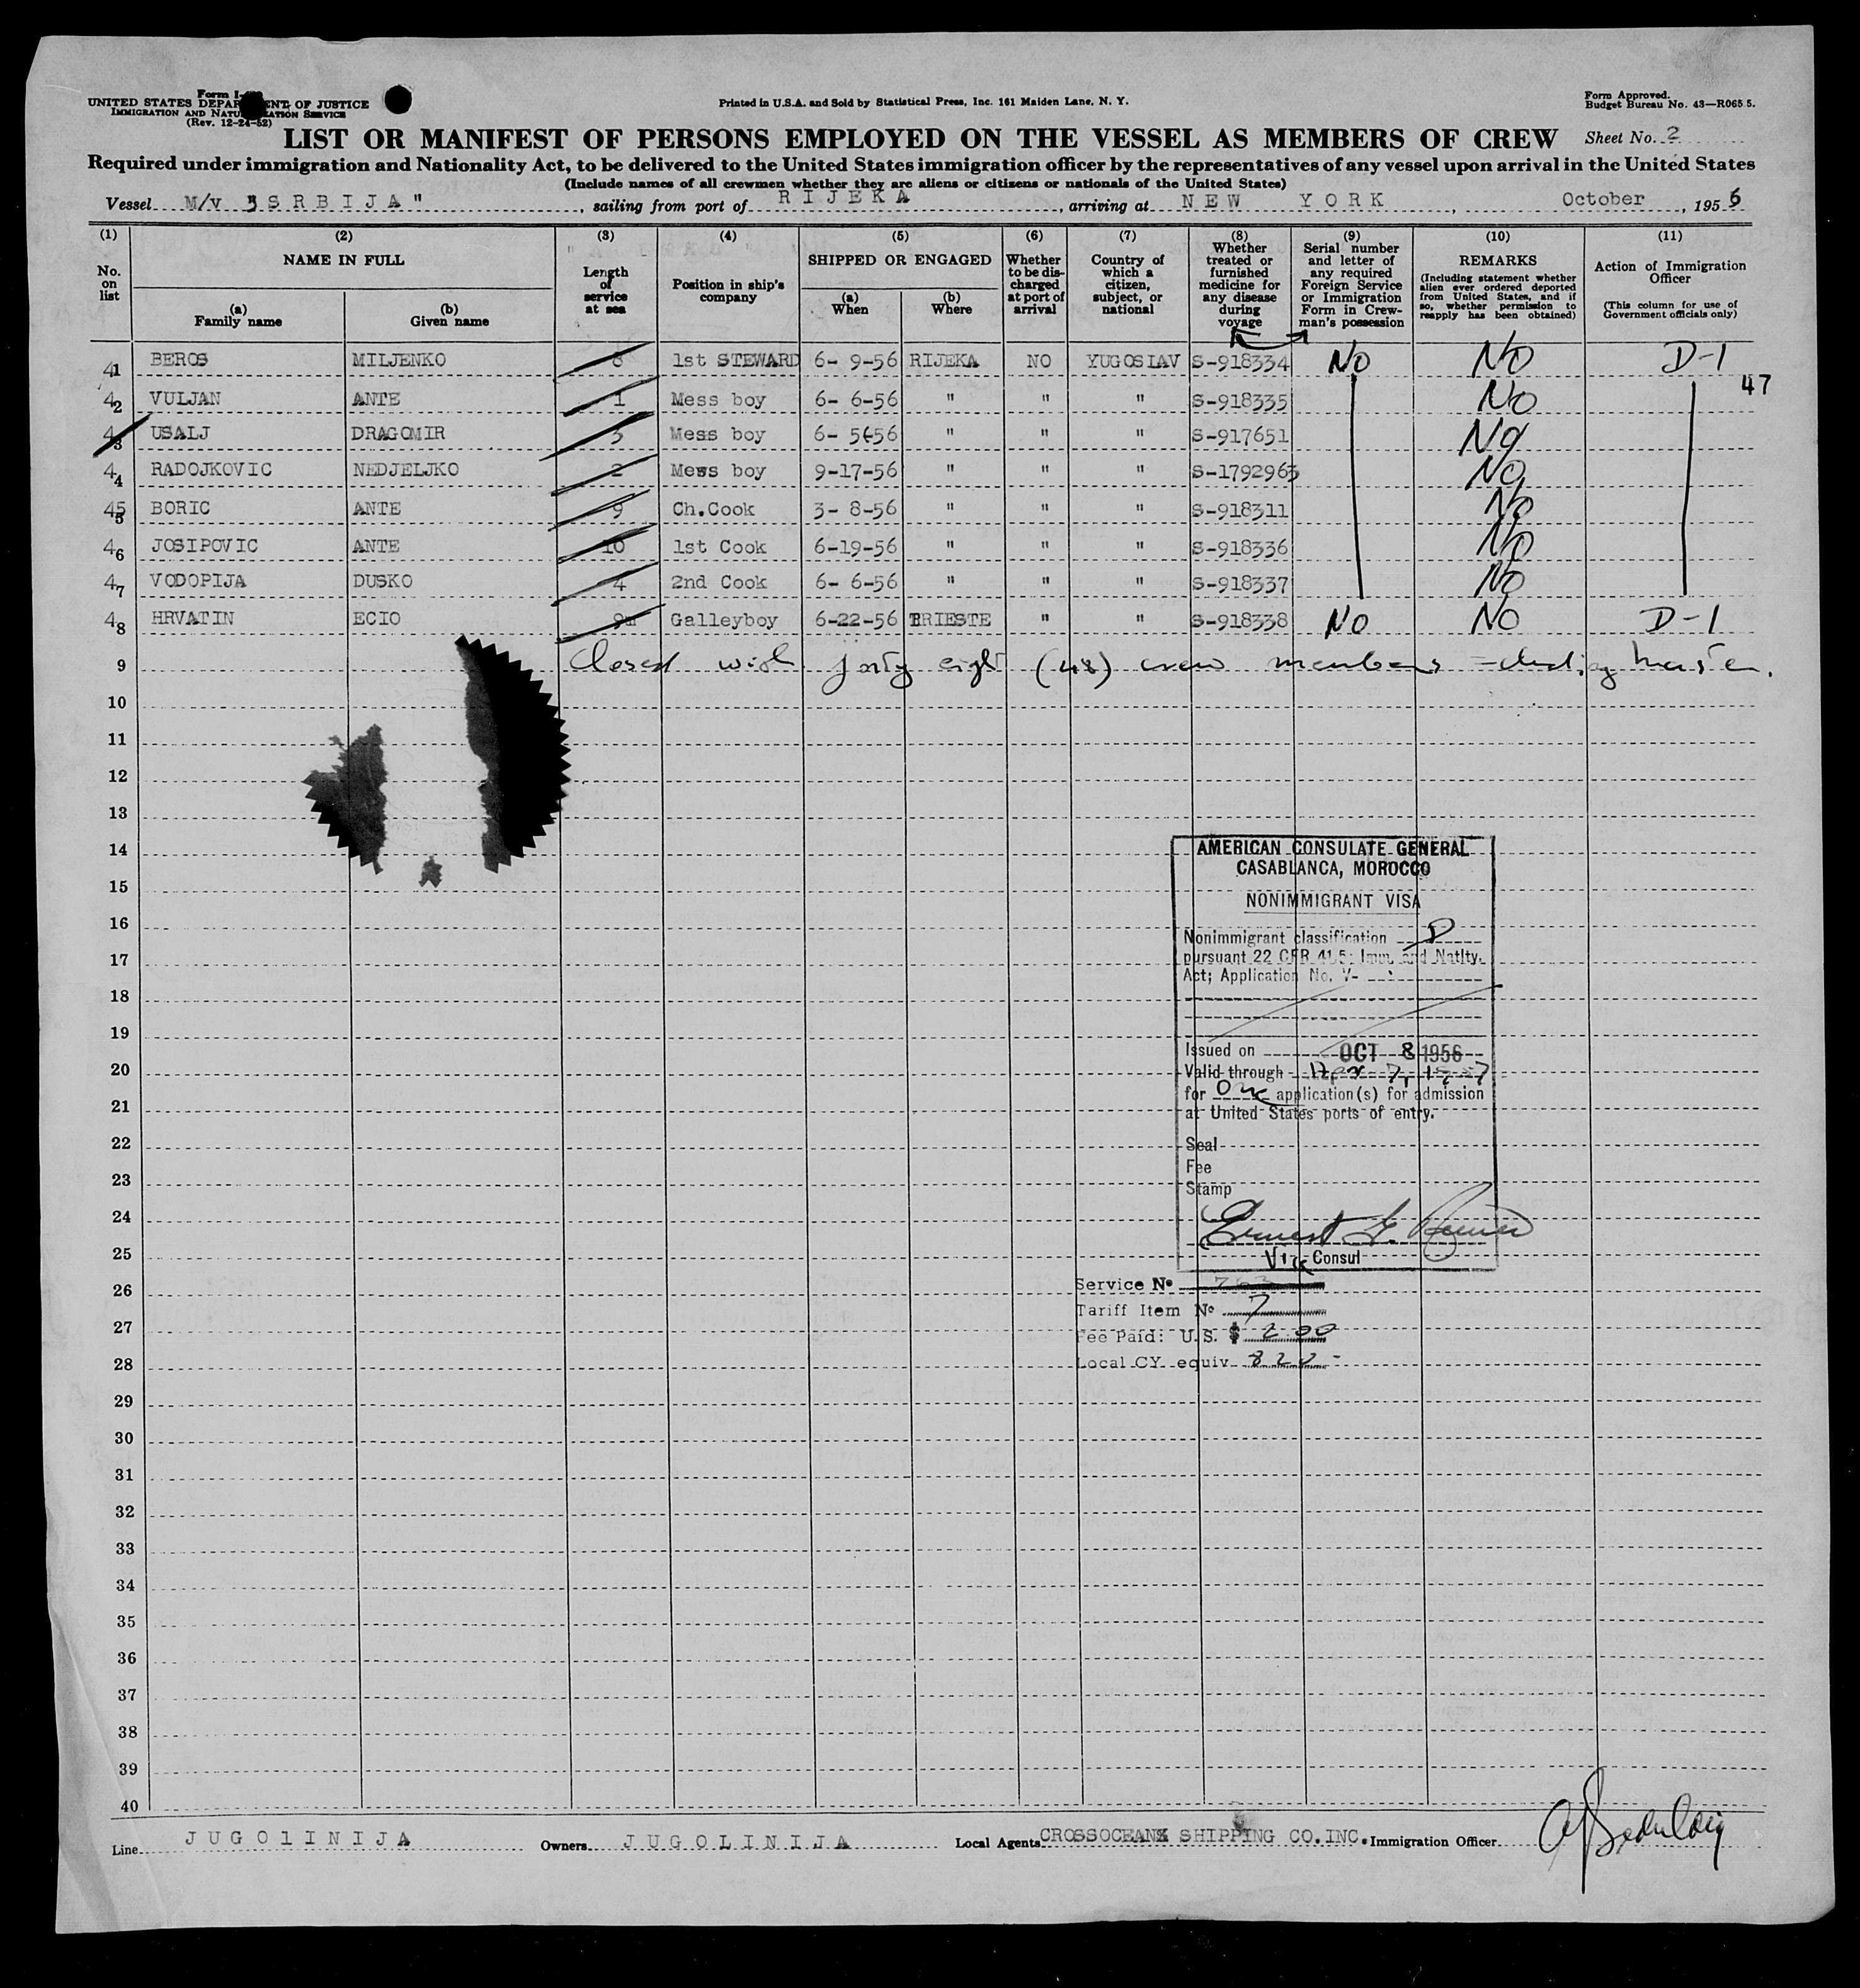 Form I-
UNITED STATES DEPAR ENT OF JUSTICE
IMMIGRATION AND NATU ATION SERVICE
(Rev. 12-24-52)
Printed in U.S.A. and Sold by Statistical Press, Inc. 161 Maiden Lane, N. Y.
Form Approved.
Budget Bureau No. 43—R065.5.
LIST OR MANIFEST OF PERSONS EMPLOYED ON THE VESSEL AS MEMBERS OF CREW Sheet No. 2
Required under immigration and Nationality Act, to be delivered to the United States immigration officer by the representatives of any vessel upon arrival in the United States
(Include names of all crewmen whether they are aliens or citizens or nationals of the United States)
Vessel M/v "SRBIJA", sailing from port of RIJEKA, arriving at NEW YORK, October, 1956
(1) No. on list
(2) NAME IN FULL
(a) Family name
(b) Given name
(3) Length of service at sea
(4) Position in ship's company
(5) SHIPPED OR ENGAGED
(a) When
(b) Where
(6) Whether to be discharged at port of arrival
(7) Country of which a citizen, subject, or national
(8) Whether treated or furnished medicine for any disease during voyage
(9) Serial number and letter of any required Foreign Service or Immigration Form in Crewman's possession
(10) REMARKS (Including statement whether alien ever ordered deported from United States, and if so, whether permission to reapply has been obtained)
(11) Action of Immigration Officer (This column for use of Government officials only)
41 BEROS MILJENKO 8 1st STEWARD 6- 9-56 RIJEKA NO YUGOSLAV S-918334 NO NO D-1
47
42 VULJAN ANTE 1 Mess boy 6- 6-56 " " " S-918335 NO
43 USALJ DRAGOMIR 3 Mess boy 6- 5-56 " " " S-917651 NO
44 RADOJKOVIC NEDJELJKO 2 Mess boy 9-17-56 " " " S-1792963 NO
45 BORIC ANTE 9 Ch.Cook 3- 8-56 " " " S-918311 NO
46 JOSIPOVIC ANTE 10 1st Cook 6-19-56 " " " S-918336 NO
47 VODOPIJA DUSKO 4 2nd Cook 6- 6-56 " " " S-918337 NO
48 HRVATIN ECIO Galleyboy 6-22-56 TRIESTE " " S-918338 NO NO D-1
9 Closed with forty eight (48) crew members master.
10
11
12
13
14
15
16
17
18
19
20
21
22
23
24
25
26
27
28
29
30
31
32
33
34
35
36
37
38
39
40
AMERICAN CONSULATE GENERAL
CASABLANCA, MOROCCO
NONIMMIGRANT VISA
Nonimmigrant classification D
pursuant 22 CFR 41.5; Imm. and Natlty.
Act; Application No. V-
Issued on OCT 8 1956
Valid through 7, 1957
for One application(s) for admission
at United States ports of entry.
Seal
Fee
Stamp
Ernest G.
Vice Consul
Service No
Tariff Item No 7
Fee Paid: U.S. $ 2.00
Local CY equiv 820-
Line JUGOlINIJA Owners JUGOLINIJA Local Agents CROSSOCEAN SHIPPING CO.INC. Immigration Officer